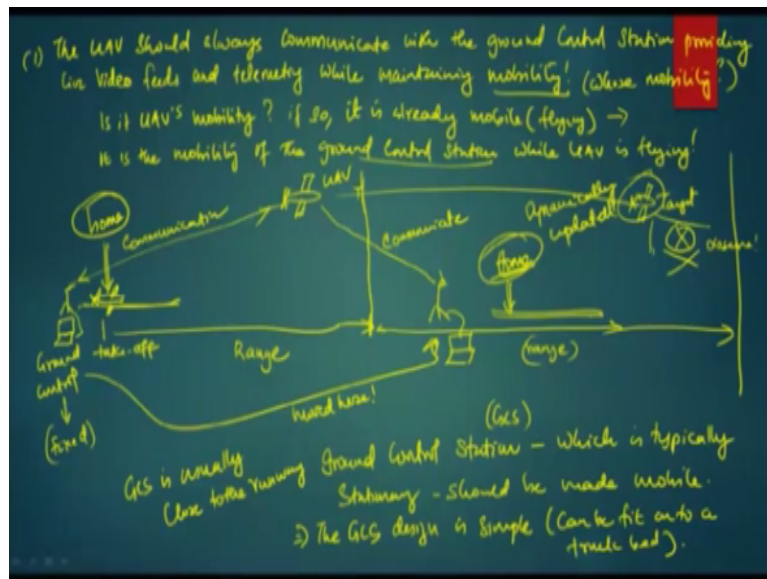 (1) The UAV should always communicate with the ground Control Station providing
live video feeds and telemetry while maintaining mobility! (whose mobility?)
Is it UAV's mobility? if so, it is already mobile (flying) →
It is the mobility of the ground Control Station while UAV is flying!
home
Communication
UAV
Communicate
Home
Dynamically
updated!
Target
Ground
control
take-off
Range
(range)
↓
(fixed)
moved here!
(GCS)
GCS is usually
Close to the runway
Ground Control Station - which is typically
Stationary - should be made mobile.
2) The GCS design is simple (Can be fit onto a
truck bed).